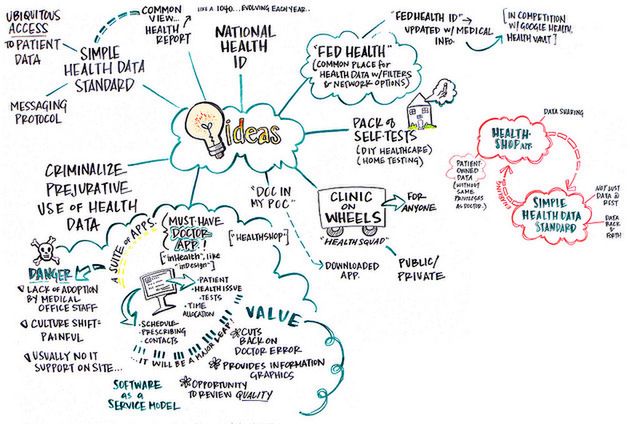 UBIQUITOUS
ACCESS
TO PATIENT
DATA
SIMPLE
HEALTH DATA
STANDARD
MESSAGING
PROTOCOL
COMMON
VIEW...
HEALTH
REPORT
LIKE A 1040... EVOLVING EACH YEAR..
NATIONAL
HEALTH
ID
"FED HEALTH"
(COMMON PLACE for
HEALTH DATA W/FILTERS
& NETWORK OPTIONS)
"FED HEALTH ID"
UPDATED W/MEDICAL
INFO.
[IN COMPETITION
W/GOOGLE HEALTH,
HEALTH VAULT]
ideas
PACK of
SELF-TESTS
(DIY HEALTHCARE)
(HOME TESTING)
DATA SHARING
HEALTH-
SHOP APP.
PATIENT-
OWNED
DATA
(WITHOUT
SAME
PRIVILEGES
AS DOCTOR.)
SIMPLE
HEALTH DATA
STANDARD
NOT JUST
DATA @
REST
DATA
BACK &
FORTH
CRIMINALIZE
PREJURATIVE
USE OF HEALTH
DATA
"DOC IN
MY POC."
DOWNLOADED
APP.
CLINIC
ON
WHEELS
"HEALTH SQUAD"
FOR
ANYONE
PUBLIC/
PRIVATE
DANGER
LACK OF ADOPTION
BY MEDICAL
OFFICE STAFF
CULTURE SHIFT=
PAINFUL
USUALLY NO IT
SUPPORT ON SITE...
A SUITE OF APPS.
MUST-HAVE
DOCTOR
APP.!
["inHealth", like
"inDesign"]
["HEALTHSHOP"]
PATIENT
HEALTH ISSUE
TESTS
TIME
ALLOCATION
SCHEDULE
PRESCRIBING
CONTACTS
...IT WILL BE A MAJOR LEAP!
VALUE
CUTS
BACK ON
DOCTOR ERROR
PROVIDES INFORMATION
GRAPHICS
OPPORTUNITY
TO REVIEW QUALITY
SOFTWARE
as a
SERVICE MODEL